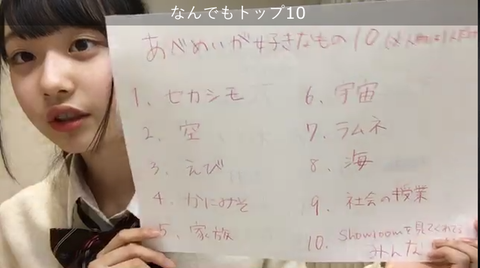 なんでもトップ10
あべめいが好きなもの10
1. セカシモ
2. 空
3. えび
4. かにみそ
5. 家族
6. 宇宙
7. ラムネ
8. 海
9. 社会の授業
10. Showroomを見てくれてる
みんな